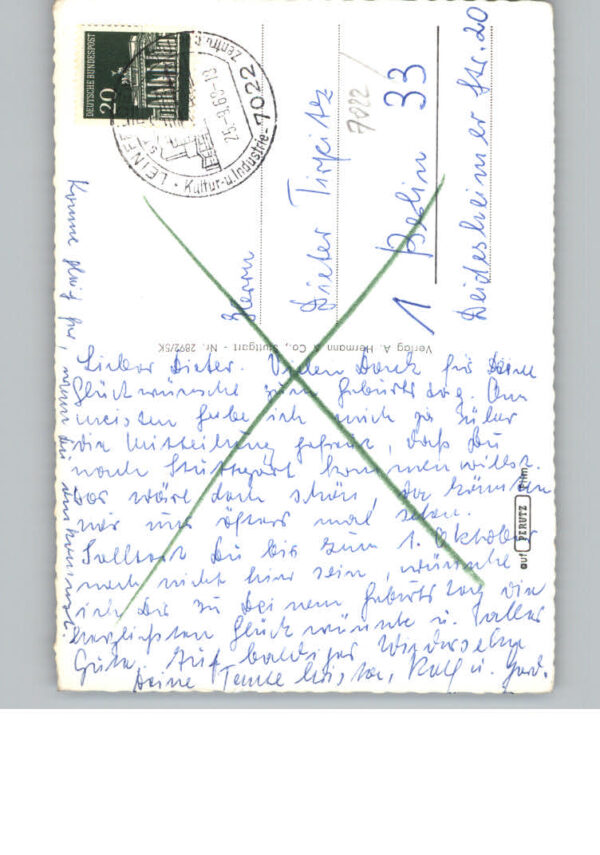 DEUTSCHE BUNDESPOST
20
LEINFE
Kultur-u.Industrie-
Zentru
7022
25.-9.69-18
7022
Herrn
Dieter Tirpitz
1 Berlin 33
Deidesheimer Str. 20
Verlag A. Hermann & Co., Stuttgart - Nr. 2892/5K
auf PERUTZ Film
Lieber Dieter. Vielen Dank für Deine
Glückwünsche zum Geburtstag. Am
meisten habe ich mich ja über
die Mitteilung gefreut, daß Du
nach Stuttgart kommen willst.
Das wäre doch schön, da könnten
wir uns öfters mal sehen.
Solltest Du bis zum 1. Oktober
noch nicht hier sein, wünsche
ich Dir zu Deinem Geburtstag die
herzlichsten Glückwünsche u. alles
Gute. Auf baldiges Wiedersehn
Deine Tante Rolf u.
Komme gleich her, wenn Du ankommst.